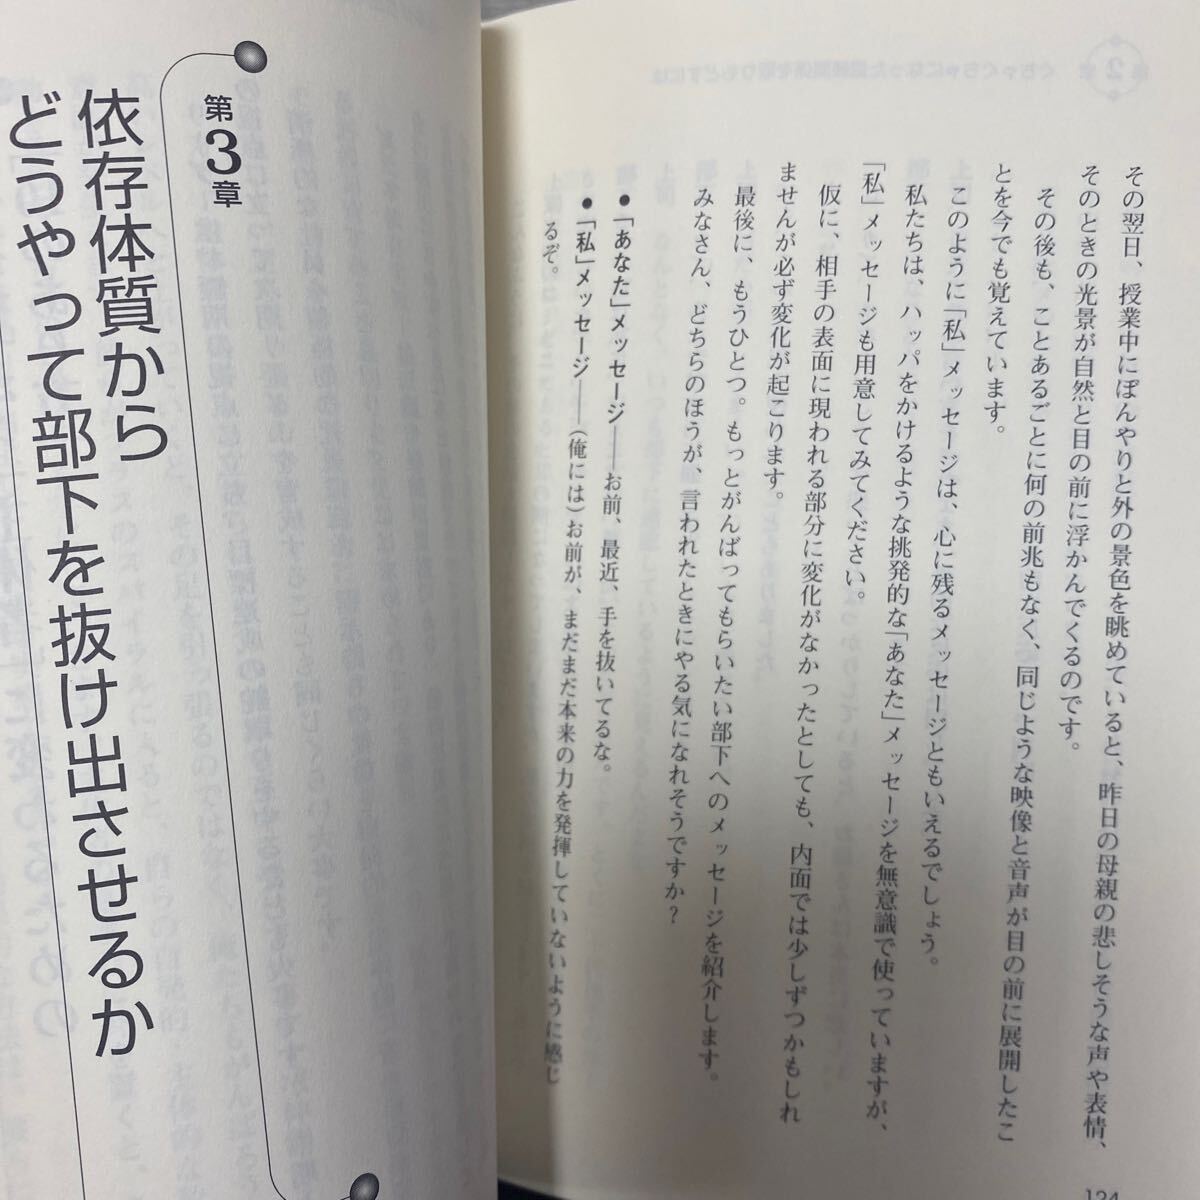 その翌日、授業中にぼんやりと外の景色を眺めていると、昨日の母親の悲しそうな声や表情、
そのときの光景が自然と目の前に浮かんでくるのです。
その後も、ことあるごとに何の前兆もなく、同じような映像と音声が目の前に展開したこ
とを今でも覚えています。
このように「私」メッセージは、心に残るメッセージともいえるでしょう。
私たちは、ハッパをかけるような挑発的な「あなた」メッセージを無意識で使っていますが、
「私」メッセージも用意してみてください。
仮に、相手の表面に現われる部分に変化がなかったとしても、内面では少しずつかもしれ
ませんが必ず変化が起こります。
最後に、もうひとつ。もっとがんばってもらいたい部下へのメッセージを紹介します。
みなさん、どちらのほうが、言われたときにやる気になれそうですか？
●「あなた」メッセージ――お前、最近、手を抜いてるな。
●「私」メッセージ――（俺には）お前が、まだまだ本来の力を発揮していないように感じ
るぞ。
124
第3章
依存体質から
どうやって部下を抜け出させるか